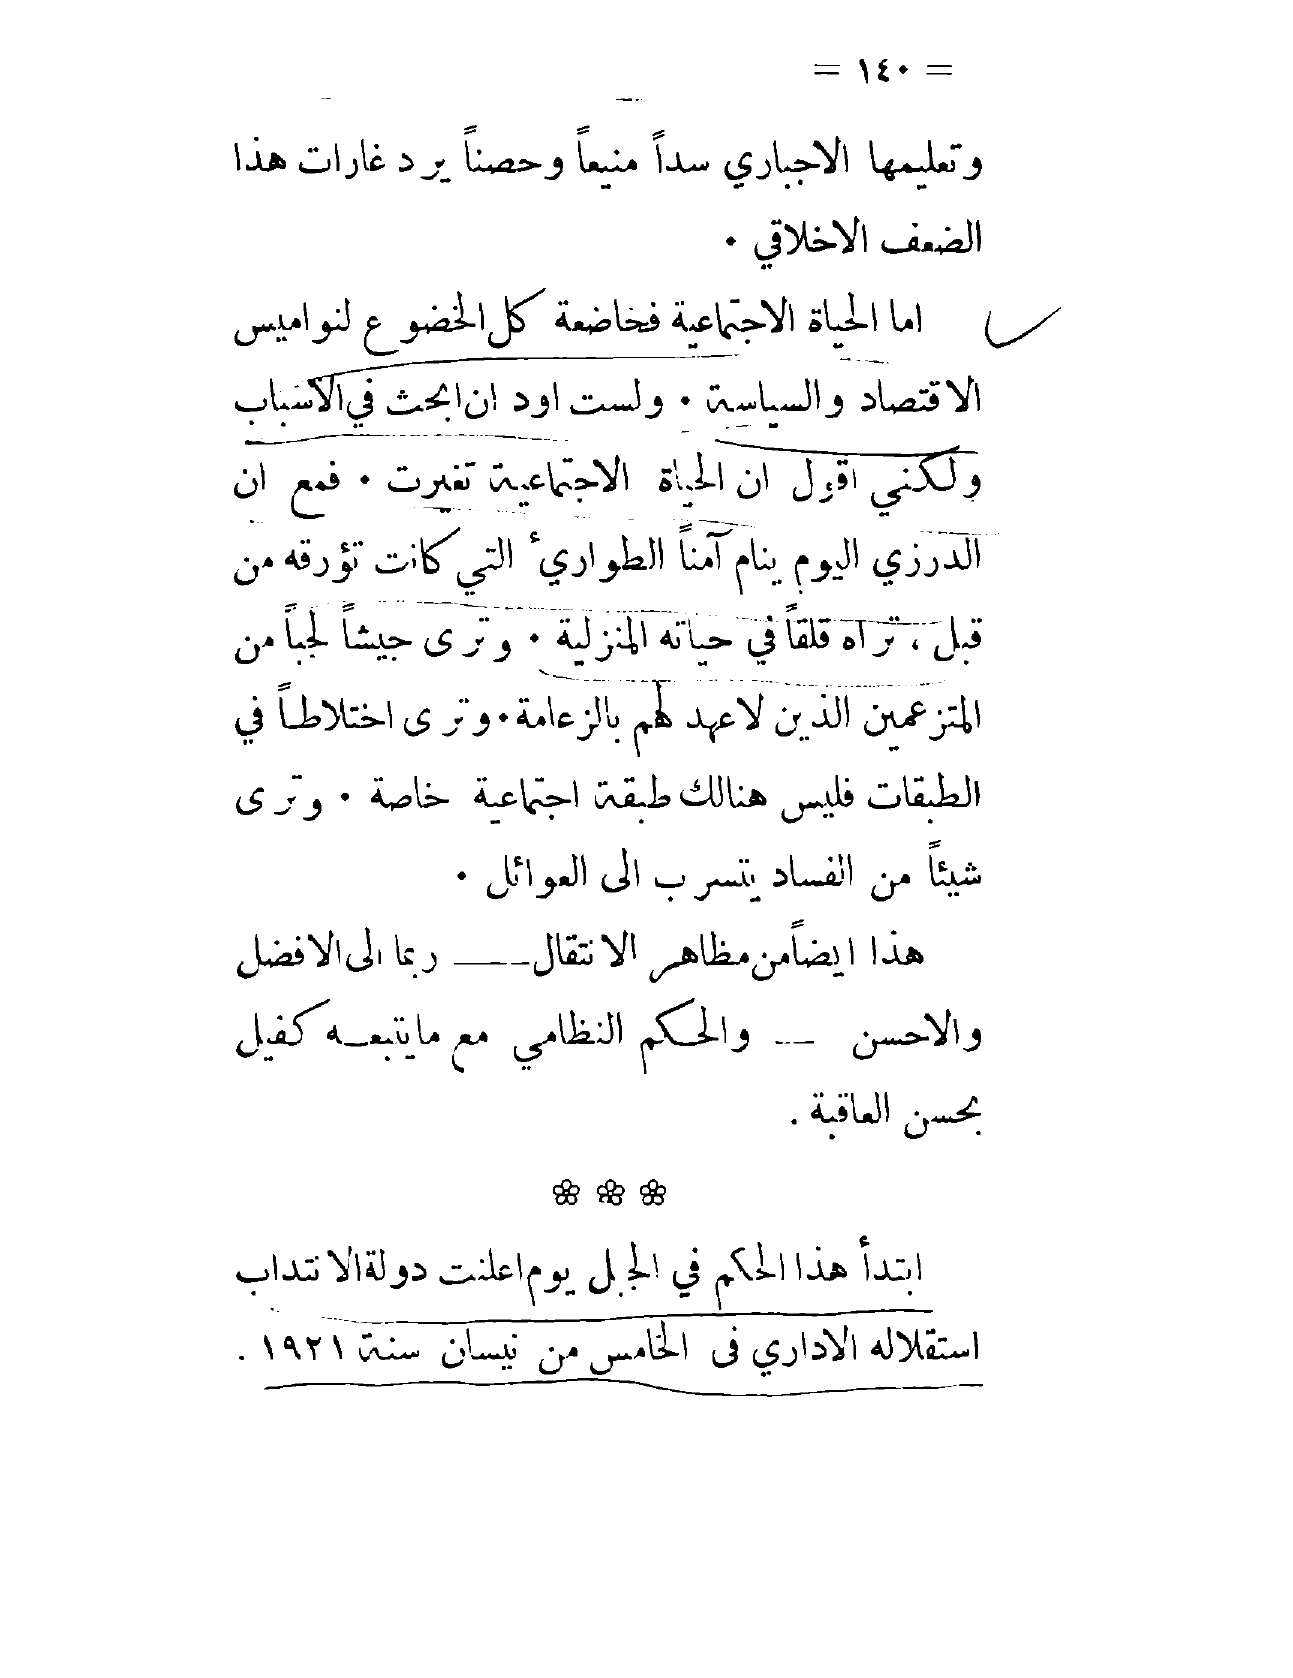 = ١٤٠ =
وتعليمها الاجباري سداً منيعاً وحصناً يرد غارات هذا
الضعف الاخلاقي ·
اما الحياة الاجتماعية فخاضعة كل الخضوع لنواميس
الاقتصاد والسياسة · ولست اود ان ابحث في الاسباب
ولكنني اقول ان الحياة الاجتماعية تغيرت · فمع ان
الدرزي اليوم ينام آمناً الطواريءُ التي كانت تؤرقه من
قبل ، تراه قلقاً في حياته المنزلية · وترى جيشاً لجباً من
المتزعمين الذين لاعهد لهم بالزعامة · وترى اختلاطاً في
الطبقات فليس هنالك طبقة اجتماعية خاصة · وترى
شيئاً من الفساد يتسرب الى العوائل ·
هذا ايضاً من مظاهر الانتقال — ربما الى الافضل
والاحسن — والحكم النظامي مع مايتبعه كفيل
بحسن العاقبة .
❀ ❀ ❀
ابتدأ هذا الحكم في الجبل يوم اعلنت دولة الانتداب
استقلاله الاداري فى الخامس من نيسان سنة ١٩٢١ .